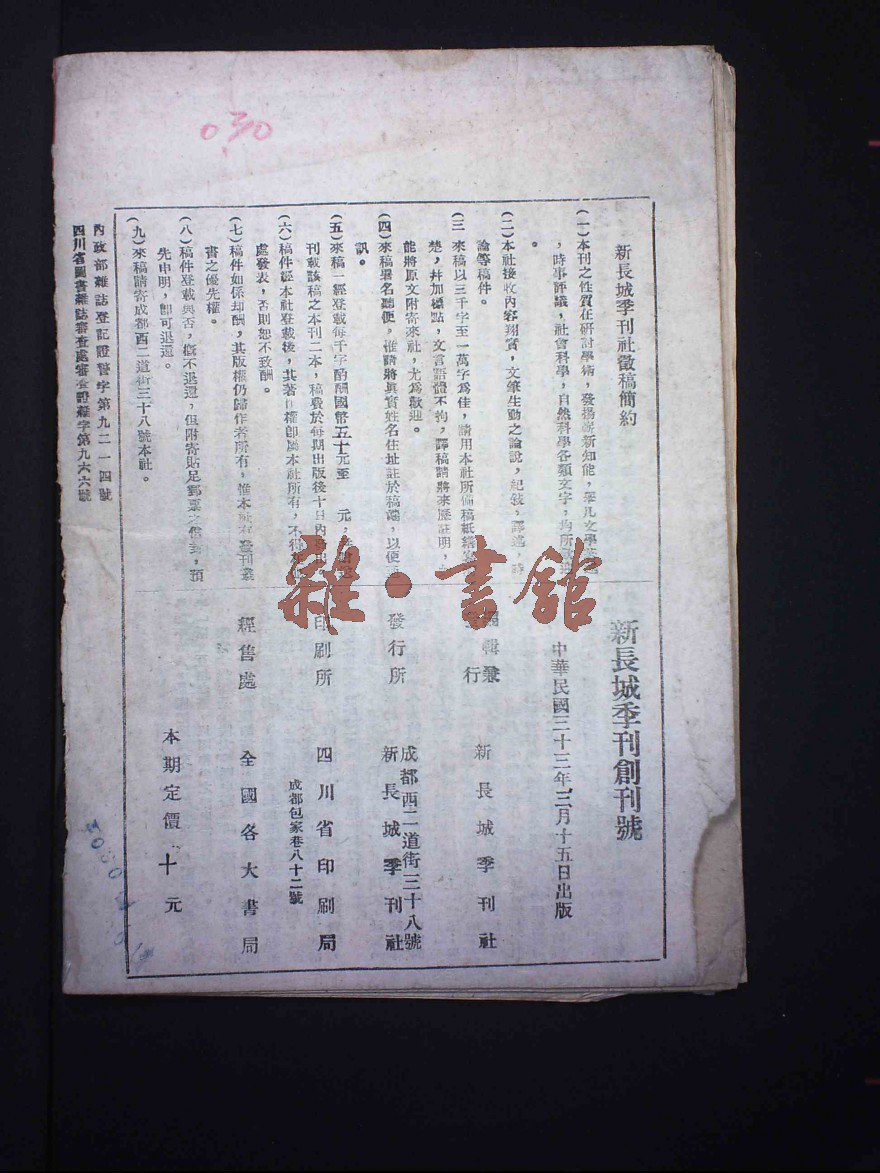 030
新長城季刊社徵稿簡約
(一)本刊之性質在研討學術,發揚嶄新知能,舉凡文學
,時事評議,社會科學,自然科學各類文字,均所歡迎
。
(二)本社接收內容翔實,文筆生動之論說,紀敍,譯述,
論等稿件。
(三 來稿以三千字至一萬字爲佳,請用本社所備稿紙繕
楚,幷加標點,文言語體不拘,譯稿請將來歷註明,
能將原文附寄來社,尤爲歡迎。
(四)來稿署名聽便,惟請將眞實姓名住址註於稿端,以便通
訊。
(五)來稿一經登載每千字酌酬國幣五十元至 元,
刊載該稿之本刊二本,稿費於每期出版後十日內
(六)稿件經本社登載後,其著作權卽屬本社所有,不得
處發表,否則恕不致酬。
(七)稿件如係却酬,其版權仍歸作者所有,惟本社有發刊叢
書之優先權。
(八)稿件登載與否,槪不退還,但附寄貼足郵票之信封,預
先申明,卽可退還。
(九)來稿請寄成都西二道街三十八號本社。
新長城季刊創刊號
中華民國三十三年三月十五日出版
編輯兼
行 新長城季刊社
發行所 新長城季刊社
成都西二道街三十八號
印刷所 四川省印刷局
成都包家巷八十二號
經售處 全國各大書局
本期定價 十元
內政部雜誌登記證警字第九二一四號
四川省圖書雜誌審查處審查證雜字第九六六號
雜·書館